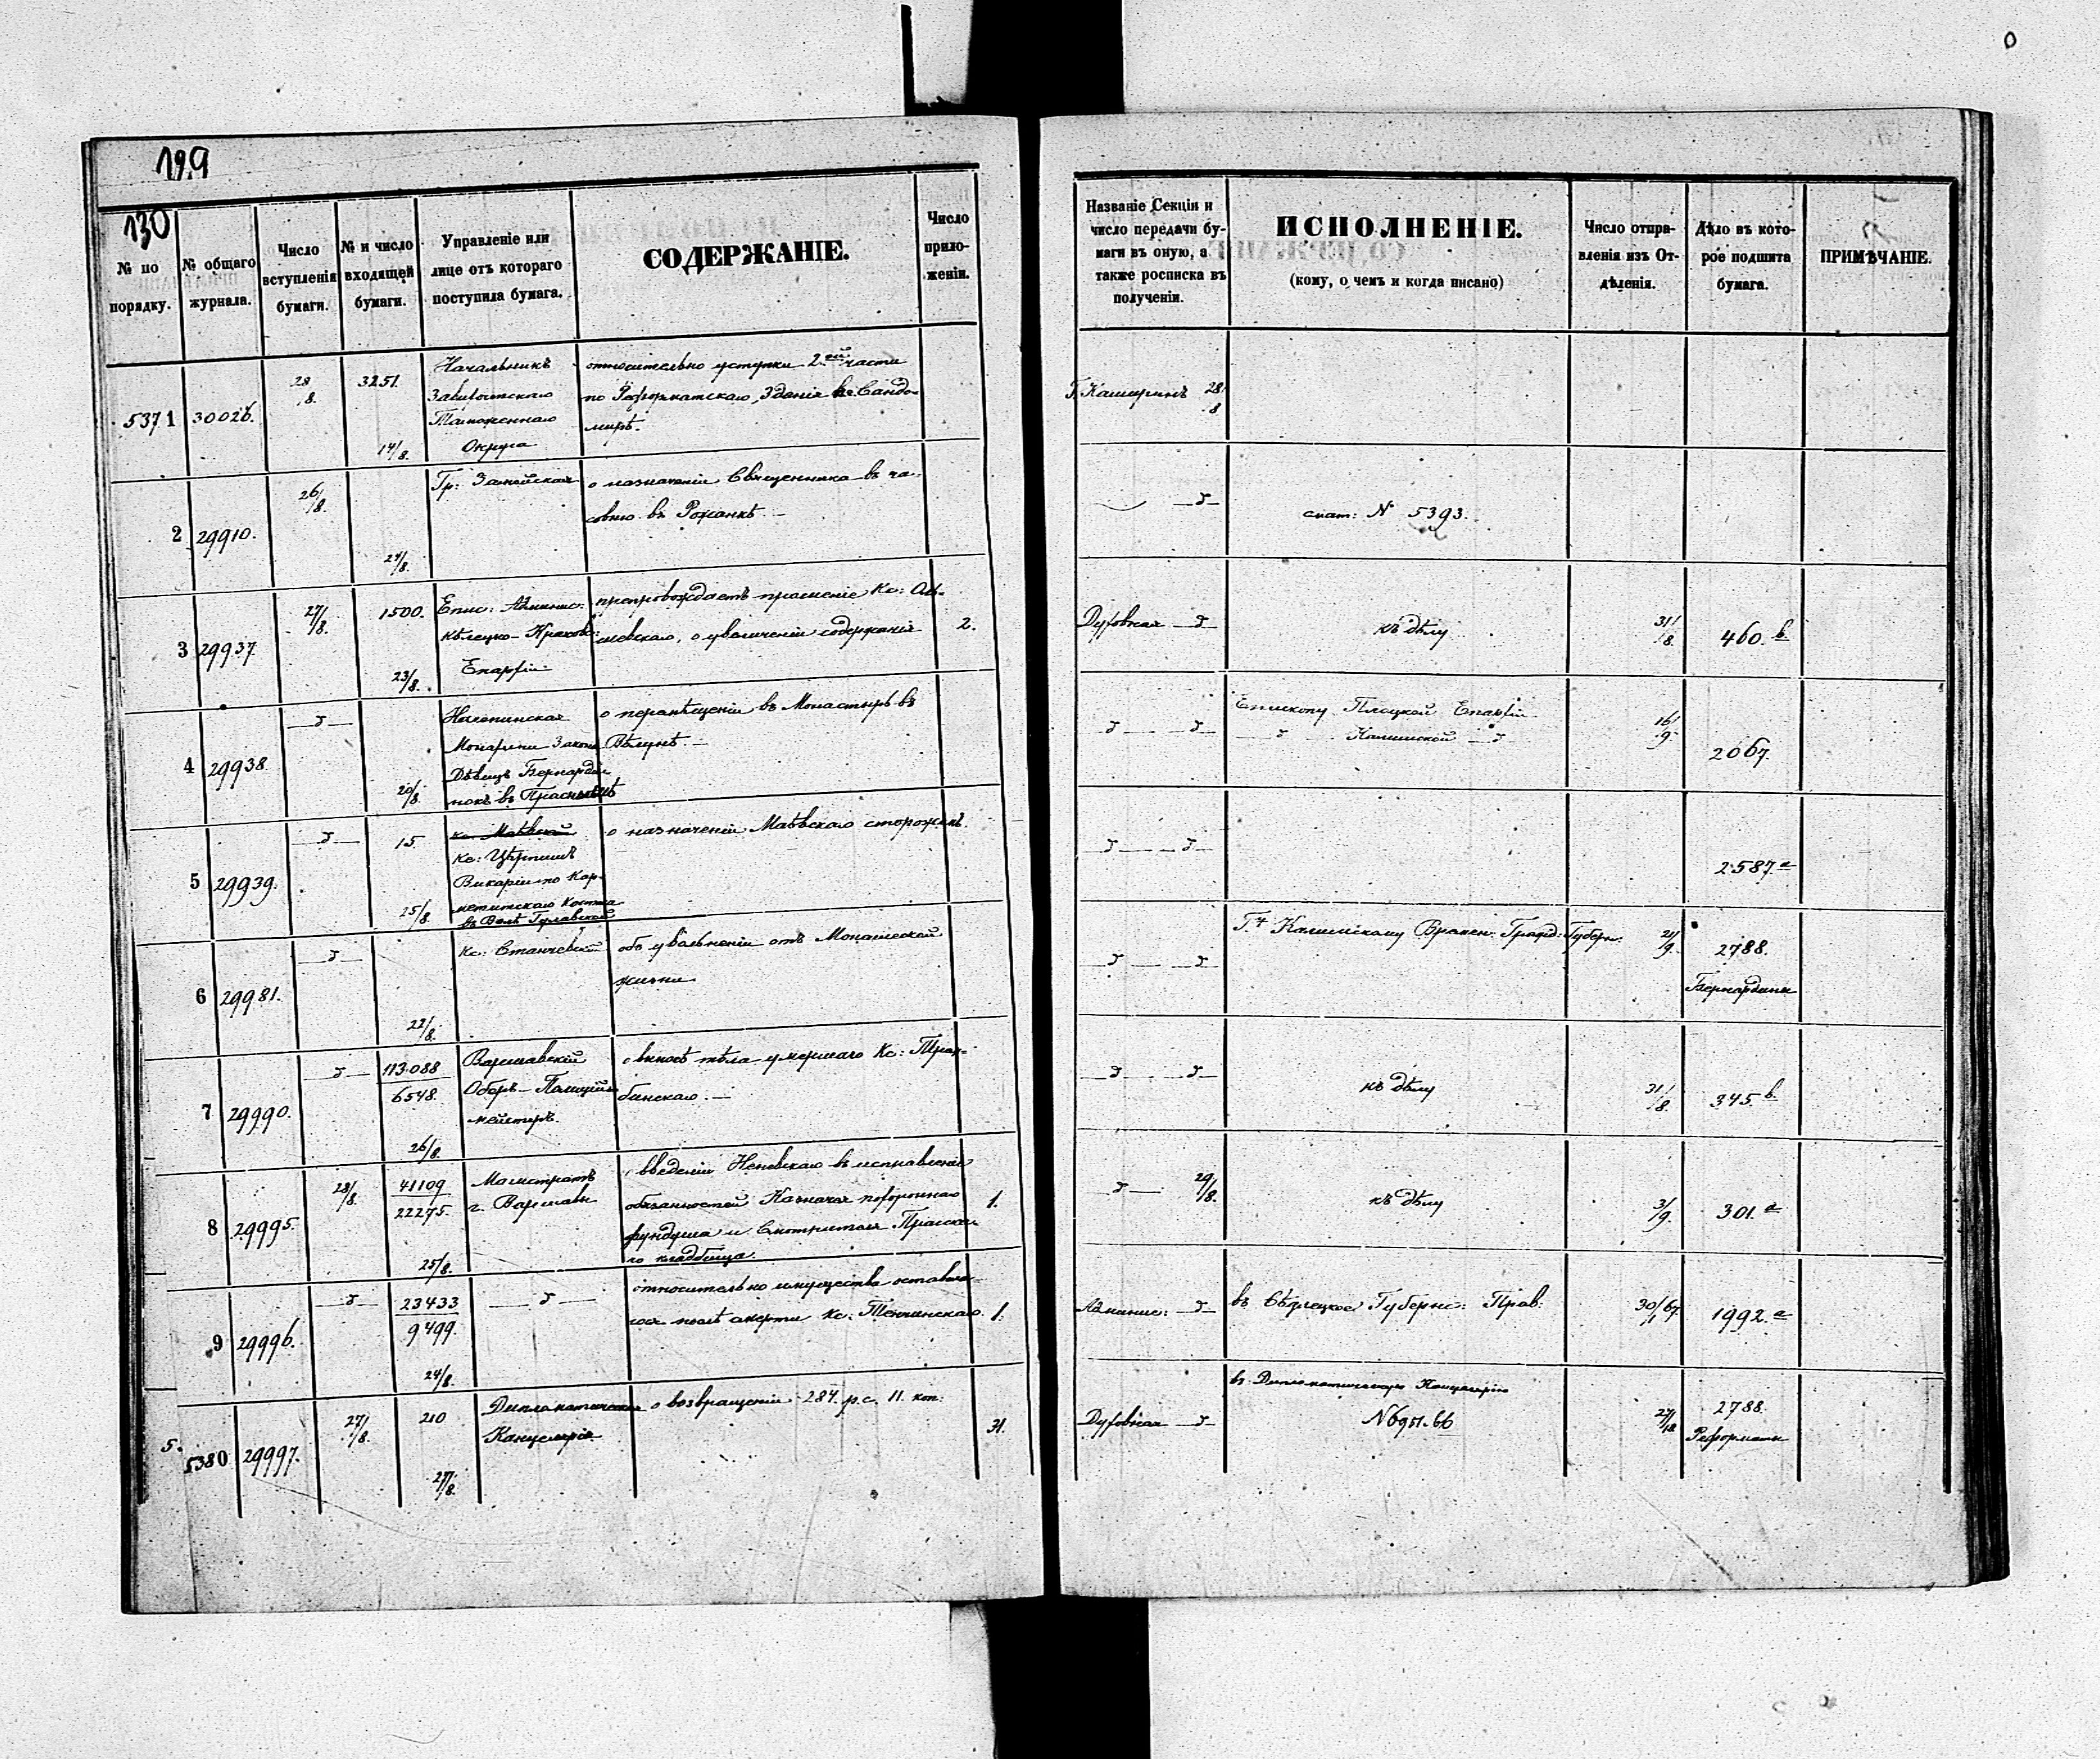 199
130
№ по порядку.
№ общаго журнала.
Число вступленія бумаги.
№ и число входящей бумаги.
Управленіе или лице отъ котораго поступила бумага.
СОДЕРЖАНІЕ.
Число прило-женіи.
Названіе Секціи и число передачи бу-маги въ оную, а также росписка въ полученіи.
ИСПОЛНЕНІЕ.
(кому, о чемъ и когда писано)
Число отпра-вленія изъ От-дѣленія.
Дѣло въ кото-рое подшита бумага.
ПРИМѢЧАНІЕ.
5371 30026. 28/8. 3251. 14/8.
Начальникъ
Таможеннаго
Округа
относительно уступки 2-ой части
по Реформатскаго Зданія въ Сандо-
мирѣ.
Г. Каширинъ 28/8
2 29910. 26/8. 24/8.
Гр: Замойская
о назначеніи Священника въ ча-
совню въ Рожанкѣ. —
— д —
смот: № 5393.
3 29937. 27/8. 1500. 23/8.
Епис: Админис:
Кѣлецко-Краковс:
Епархіи
препровождаетъ прошеніе Кс:
о увеличеніи содержанія
2.
Духовная — д —
къ дѣлу
31/8. 460. b
4 29938. — д — 20/8.
Монахини Закона
Дѣвицъ Бернардин-
нокъ въ Праснышѣ
о перемѣщеніи въ Монастырь въ
Вѣлунѣ. —
— д — — д —
Епископу Плоцкой Епархіи
— д — Калишской — д —
16/9. 2067.
5 29939. — д — 15. 25/8.
Кс: Маѣвскій
Викарій по Кар-
мелитскаго Костела
въ Волѣ Гуловской
о назначеніи Маѣвскаго сторожемъ.
— д — — д —
2587. a
6 29981. — д — 22/8.
Кс: Станчевскій
объ увольненіи отъ Монашеской
жизни
— д — — д —
Г-ну Калишскому Времен: Гражд: Губерн:
21/9. 2788.
Бернардины
7 29990. — д — 113.088
6548. 26/8.
Варшавскій
Оберъ-Полицій-
мейстеръ.
о выносѣ тѣла умершаго Кс:
бинскаго. —
— д — — д —
къ дѣлу
31/8. 345. b.
8 29995. 28/8. 41109
22275. 25/8.
Магистратъ
г. Варшавы
о введеніи въ исправленіе
обязанностей Казначея похороннаго
фундуша и Смотрителя Пражска-
го кладбища.
1.
— д — 29/8.
къ дѣлу
3/9. 301. a
9 29996. — д — 23433
9499. 24/8.
— д —
относительно имущества оставша-
гося послѣ смерти Кс: Тенчинскаго.
1.
Админис: — д —
въ Сѣдлецкое Губернс: Прав:
30/1 67. 1992. a
5. 5380 29997. 27/8. 210 27/8.
Дипломатическая
Канцелярія.
о возвращеніи 284. р.с. 11. коп:
31.
Духовная — д —
въ Дипломатическую Канцелярію
№ 6951.66
27/12 2788.
Реформаты